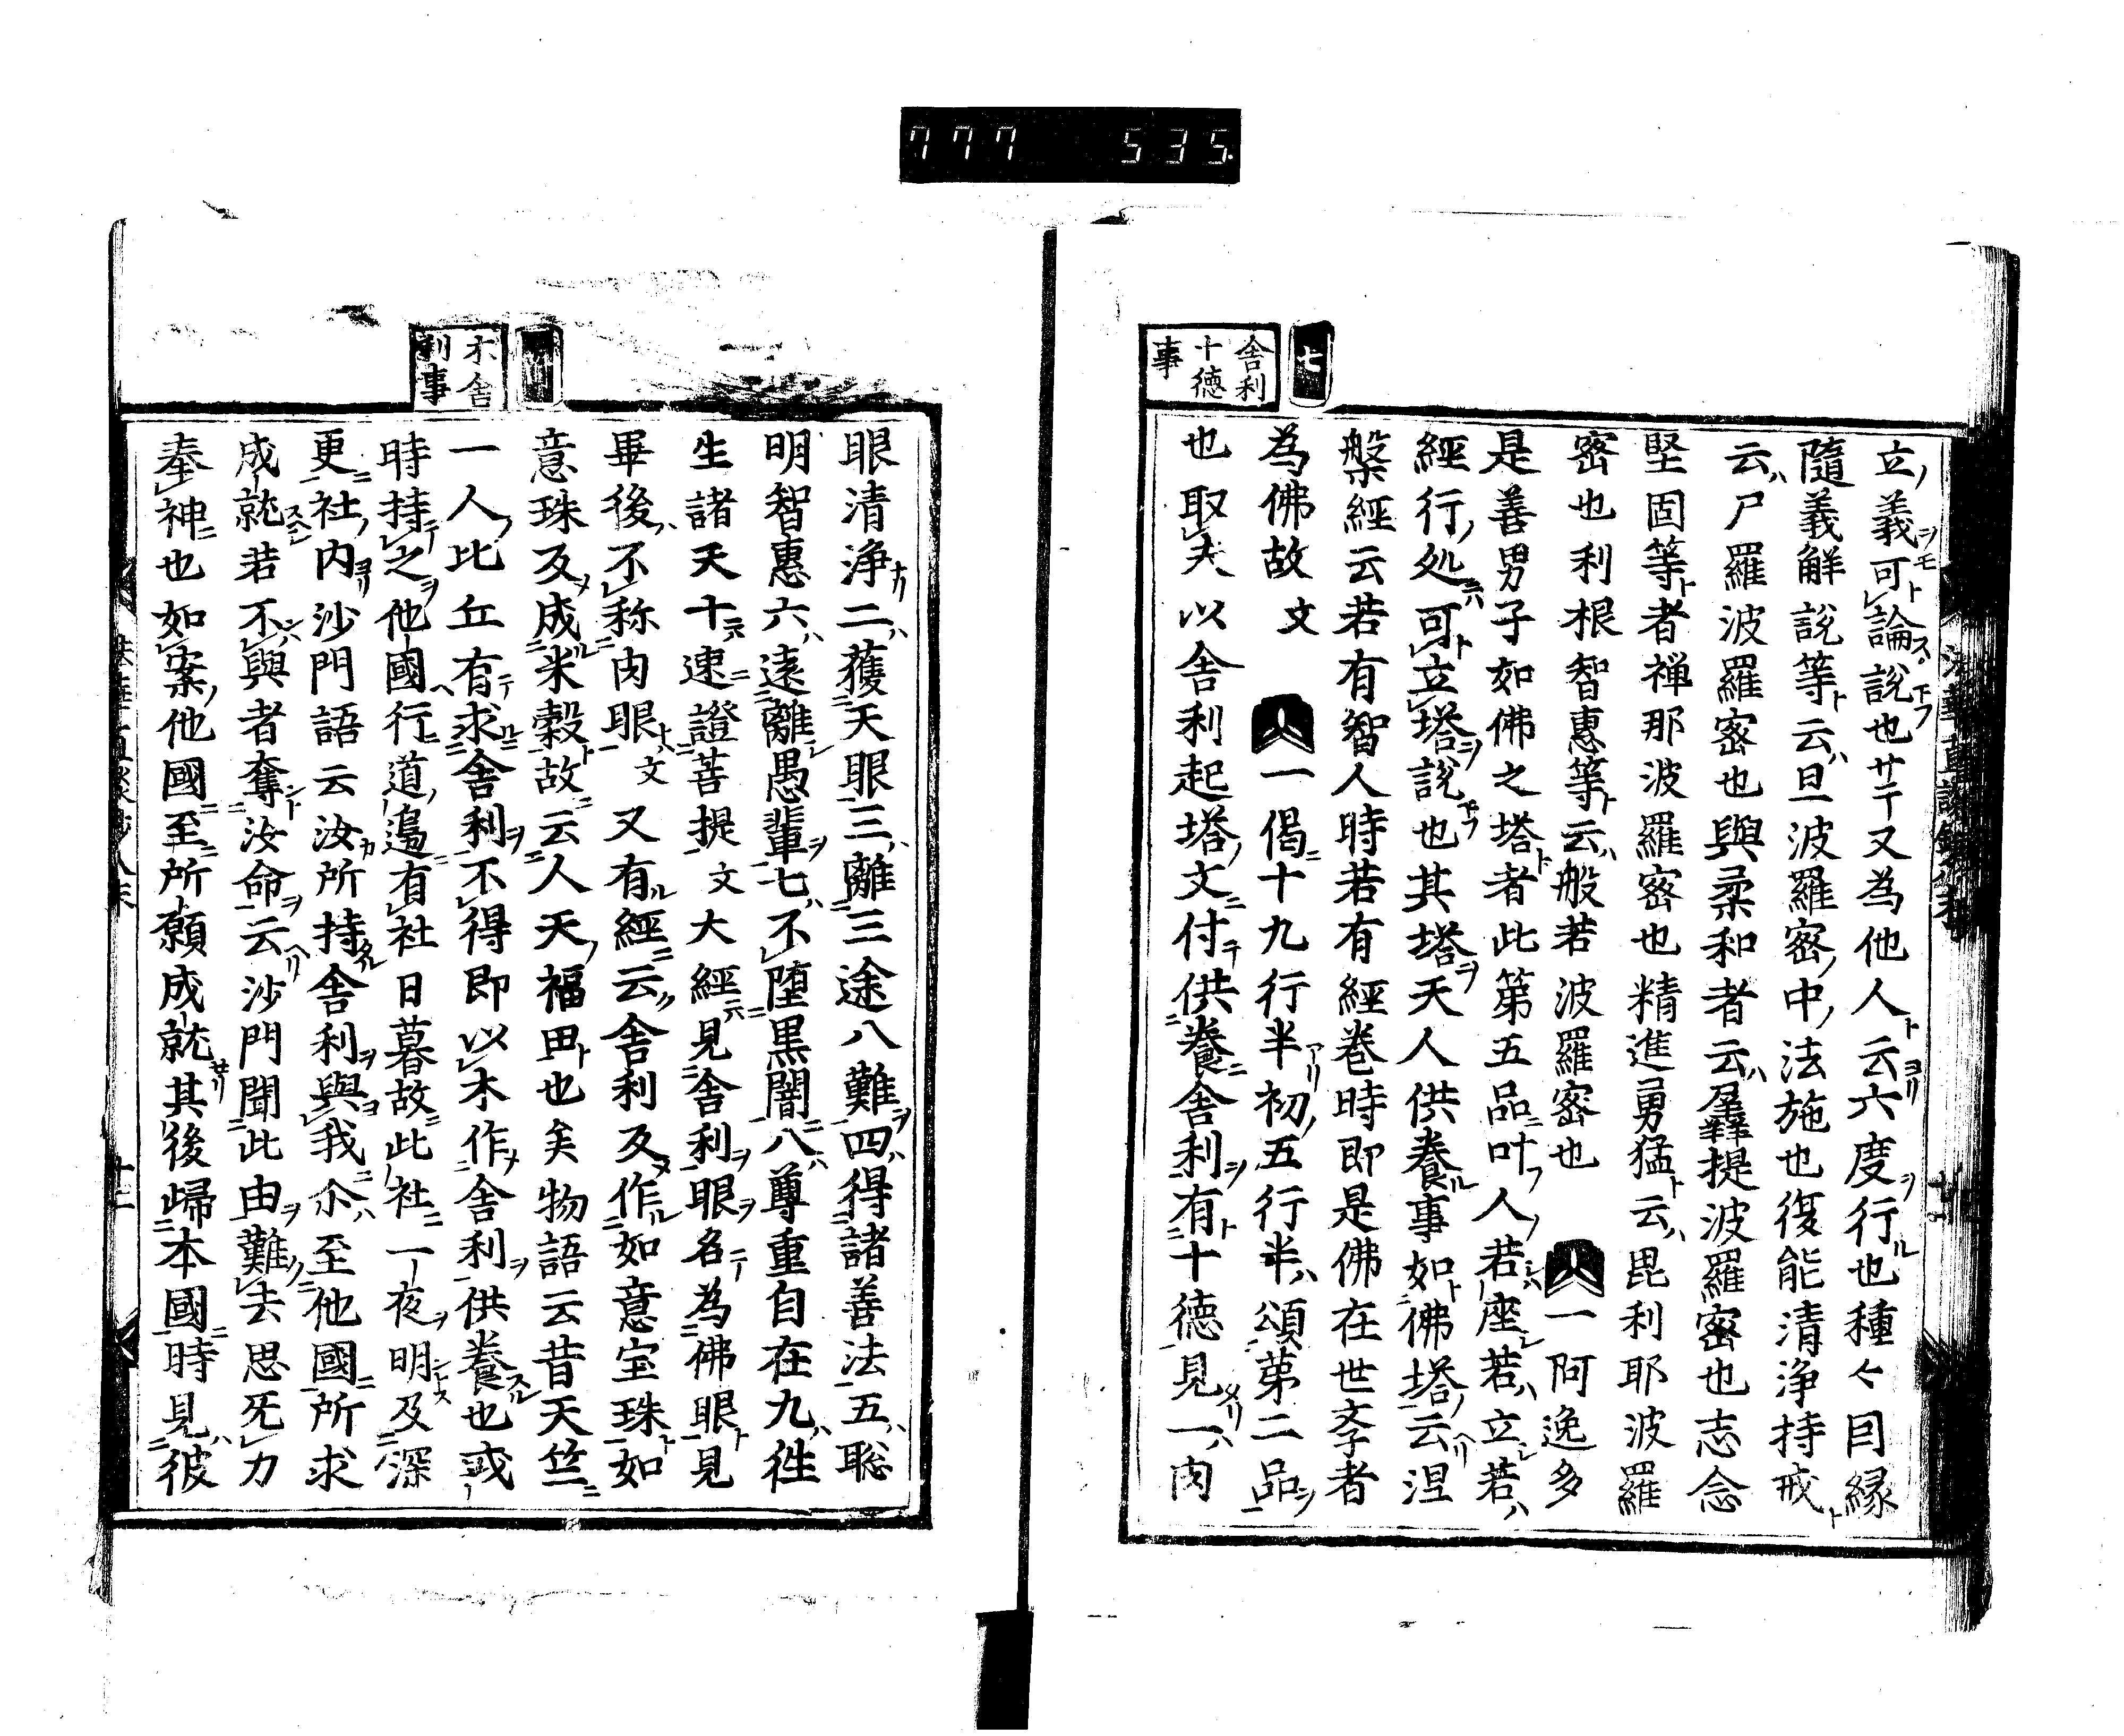 777 535.
七
舎利
十徳
事
立義可論説也廿丁又為他人云六度行也種々因縁
隨義解説等云旦波羅密中法施也復能清浄持戒
云尸羅波羅密也與柔和者云羼提波羅密也志念
堅固等者禅那波羅密也精進勇猛云毘利耶波羅
密也利根智惠等云般若波羅密也 一阿逸多
是善男子如佛之塔者此第五品叶人若座若立若
經行処可立塔説也其塔天人供養事如佛塔云涅
槃經云若有智人時若有經巻時即是佛在世孝者
為佛故文 一偈十九行半初五行半頌第二品
也取夫以舎利起塔文付供養舎利有十徳見一肉
木舎
利事
眼清浄二獲天眼三離三途八難四得諸善法五聡
明智惠六遠離愚輩七不堕黒闇八尊重自在九徃
生諸天十速證菩提文大經見舎利眼名為佛眼見
畢後不称肉眼文又有經云舎利反作如意宝珠如
意珠反成米穀故云人天福田也矣物語云昔天竺
一人比丘有求舎利不得即以木作舎利供養也或
時持之他國行道邉有社日暮故此社一夜明及深
更社内沙門語云汝所持舎利與我尒至他國所求
成就若不與者奪汝命云沙門聞此由難去思死力
奉神也如案他國至所願成就其後歸本國時見彼